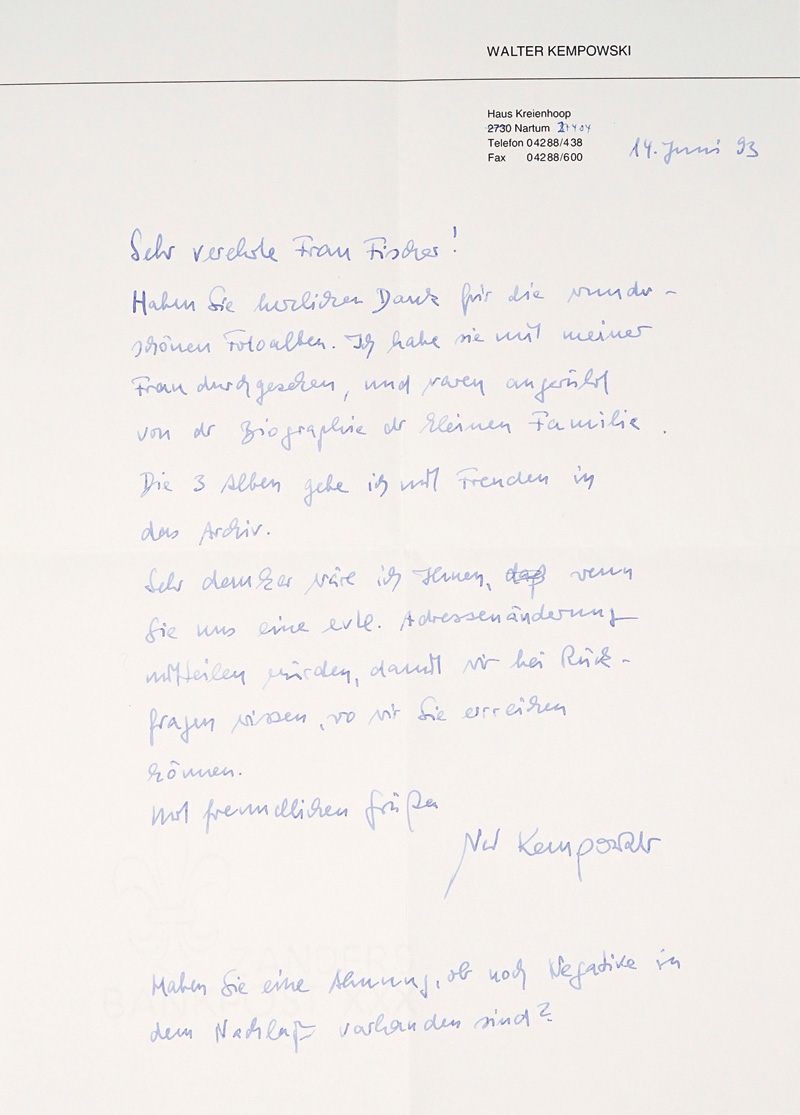 WALTER KEMPOWSKI
Haus Kreienhoop
2730 Nartum 27404
Telefon 04288/438
Fax 04288/600
14. Juni 93
Sehr verehrte Frau Fischer!
Haben Sie herzlichen Dank für die wunder-
schönen Fotoalben. Ich habe sie mit meiner
Frau durchgesehen, und waren angerührt
von der Biographie der kleinen Familie.
Die 3 Alben gebe ich mit Freuden in
das Archiv.
Sehr dankbar wäre ich Ihnen, daß wenn
Sie uns eine evtl. Adressenänderung
mitteilen würden, damit wir bei Rück-
fragen wissen, wo wir Sie erreichen
können.
Mit freundlichen Grüßen
Kempowski
Haben Sie eine Ahnung, ob noch Negative in
dem Nachlaß vorhanden sind?
ZANDERS
BANKPOST XXX